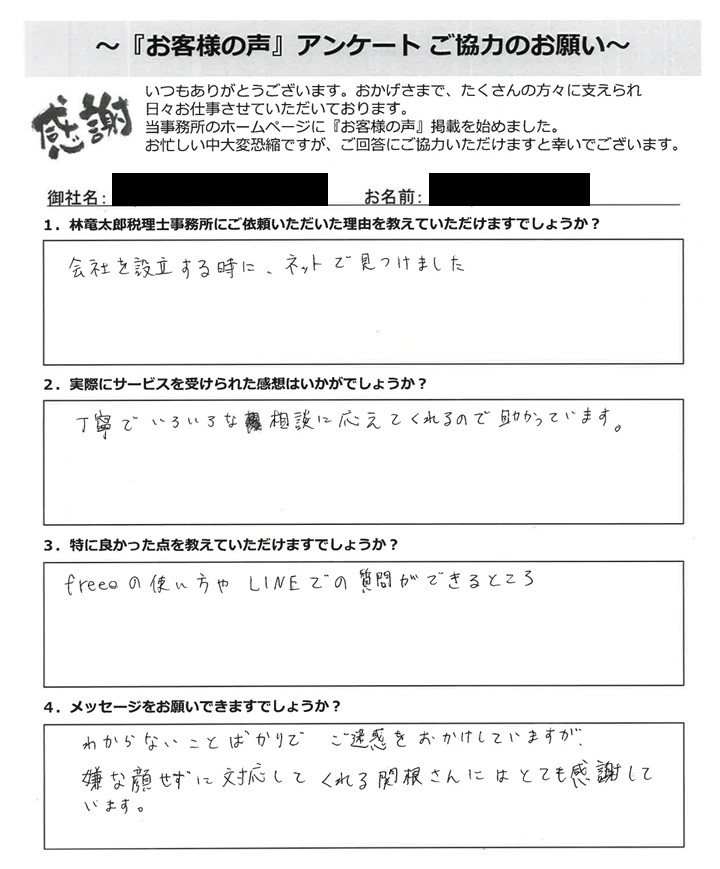 ～『お客様の声』アンケート ご協力のお願い～
感謝
いつもありがとうございます。おかげさまで、たくさんの方々に支えられ
日々お仕事させていただいております。
当事務所のホームページに『お客様の声』掲載を始めました。
お忙しい中大変恐縮ですが、ご回答にご協力いただけますと幸いでございます。
御社名： お名前：
１．林竜太郎税理士事務所にご依頼いただいた理由を教えていただけますでしょうか？
会社を設立する時に、ネットで見つけました
２．実際にサービスを受けられた感想はいかがでしょうか？
丁寧でいろいろな相談に応えてくれるので助かっています。
３．特に良かった点を教えていただけますでしょうか？
freeeの使い方やLINEでの質問ができるところ
４．メッセージをお願いできますでしょうか？
わからないことばかりで ご迷惑をおかけしていますが、
嫌な顔せずに対応してくれる関根さんにはとても感謝して
います。